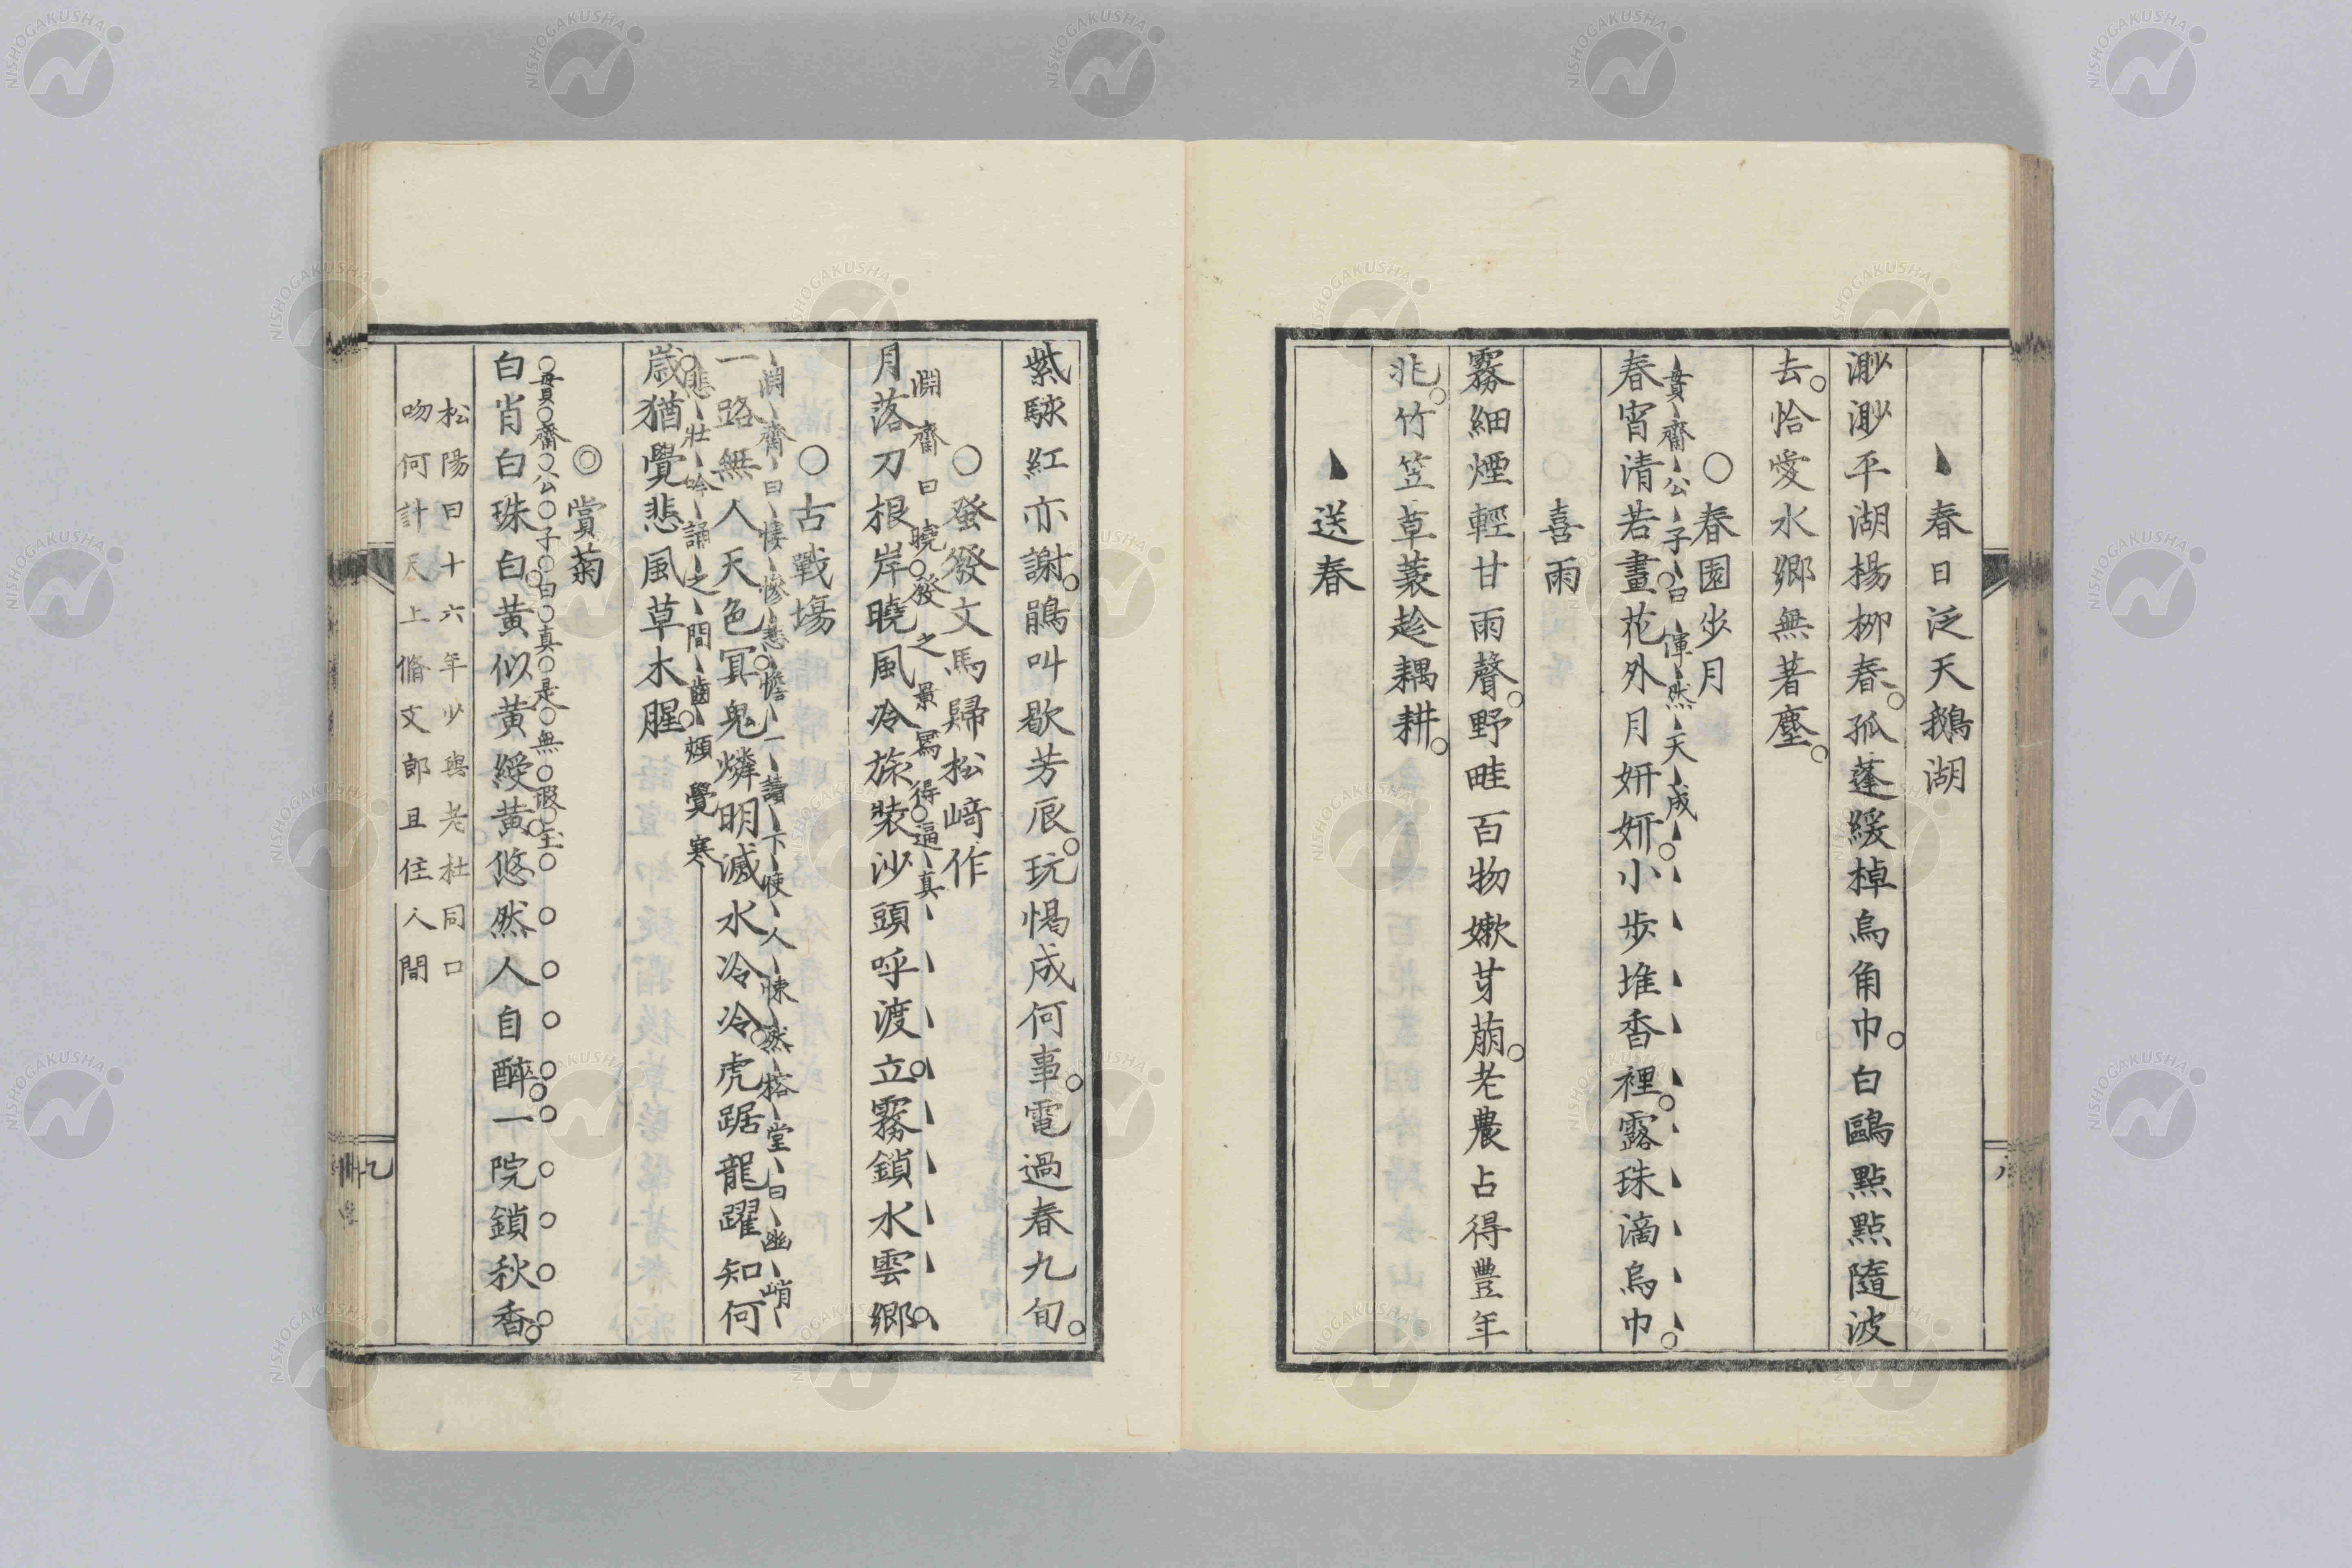 春日泛天鵝湖
渺渺平湖楊柳春。孤蓬緩棹烏角巾。白鷗點點隨波
去。恰愛水鄉無著塵。
○春園步月
賁齋公子曰渾然天成
春宵清若畫。花外月妍妍。小步堆香裡。露珠滴烏巾。
喜雨
霧細煙輕甘雨聲。野畦百物嫩芽萠。老農占得豐年
兆。竹笠草蓑趁耦耕。
送春
紫駩紅亦謝。鵑叫歇芳辰。玩愒成何事。電過春九旬。
○發發文馬歸松﨑作
淵齋曰曉發之景寫得逼真
月落刀根岸。曉風冷旅裝。沙頭呼渡立。霧鎖水雲鄉。
○古戰塲
淵齋曰悽慘悲憺一讀下使人悚然榕堂曰幽峭
一路無人天色冥。鬼燐明滅水冷冷。虎踞龍躍知何
悲壯吟誦之間齒頰覺寒
歲。猶覺悲風草木腥
◎賞菊
賁齋公子曰真是無瑕玉
白肖白珠白。黃似黃綬黃。悠然人自醉。一院鎖秋香。
松陽曰十六年少與老杜同口
吻何計天上脩文郎且住人間
九
NISHOGAKUSHA